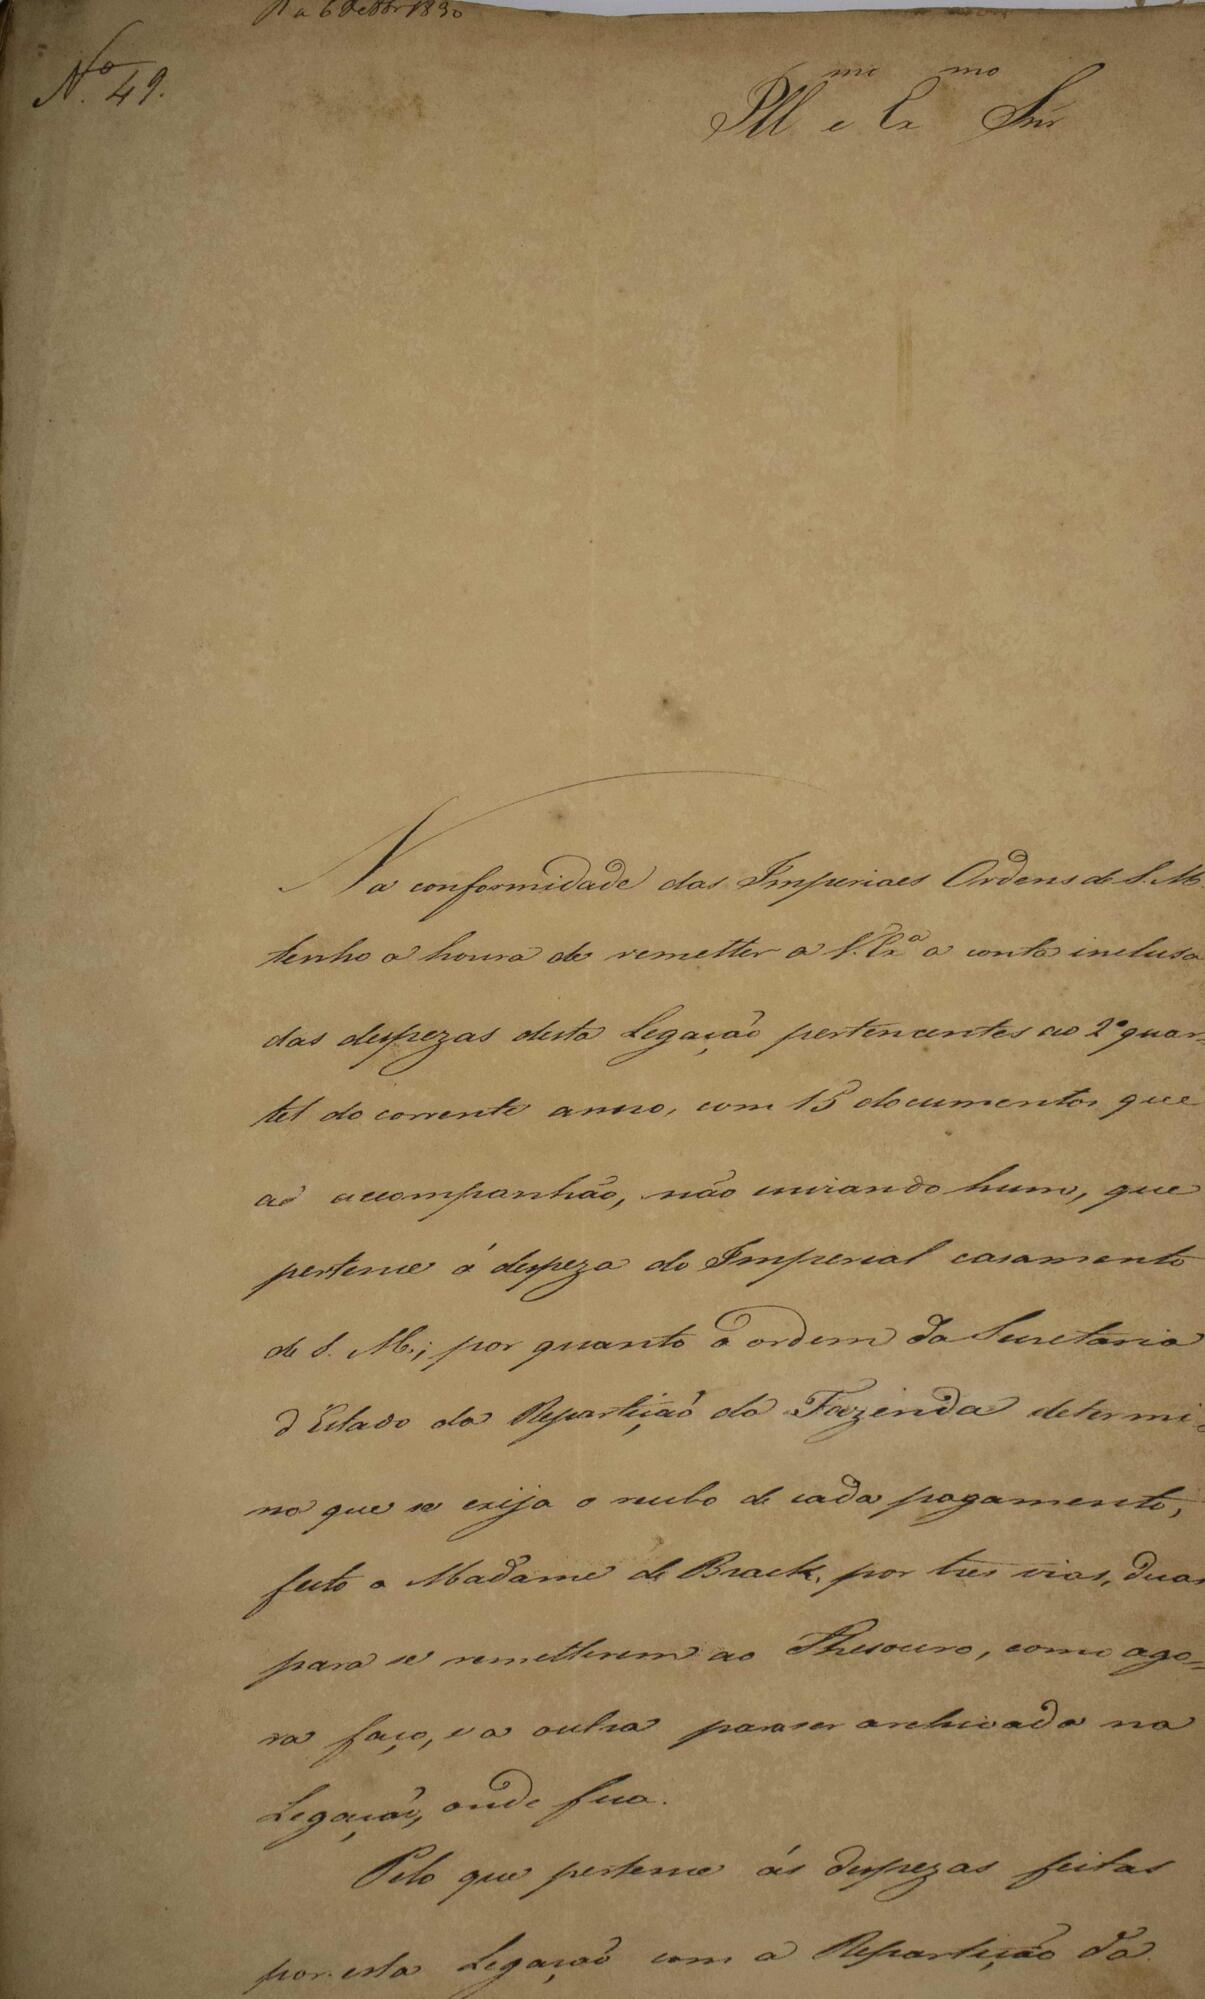 R a 6 Setbr 1830
Nº. 49.
Illmo e Exmo Snr
Na conformidade das Imperiaes Ordens de S. M.
tenho a honra de remetter a V. Exª a conta inclusa
das despezas desta Legação pertencentes ao 2º quar-
tel do corrente anno, com 15 documentos, que
as accompanhão, não inviando hum, que
pertence á despeza do Imperial casamento
de S. M.; por quanto a ordem da Secretaria
d'Estado da Repartição da Fazenda determi-
na que se exija o recibo de cada pagamento,
feito a Madame de Brack, por tres vias, duas
para se remetterem ao Thesouro, como ago-
ra faço, e a outra para ser archivada na
Legação, onde fica.
Pelo que pertence ás despezas feitas
por esta Legação com a Repartição da